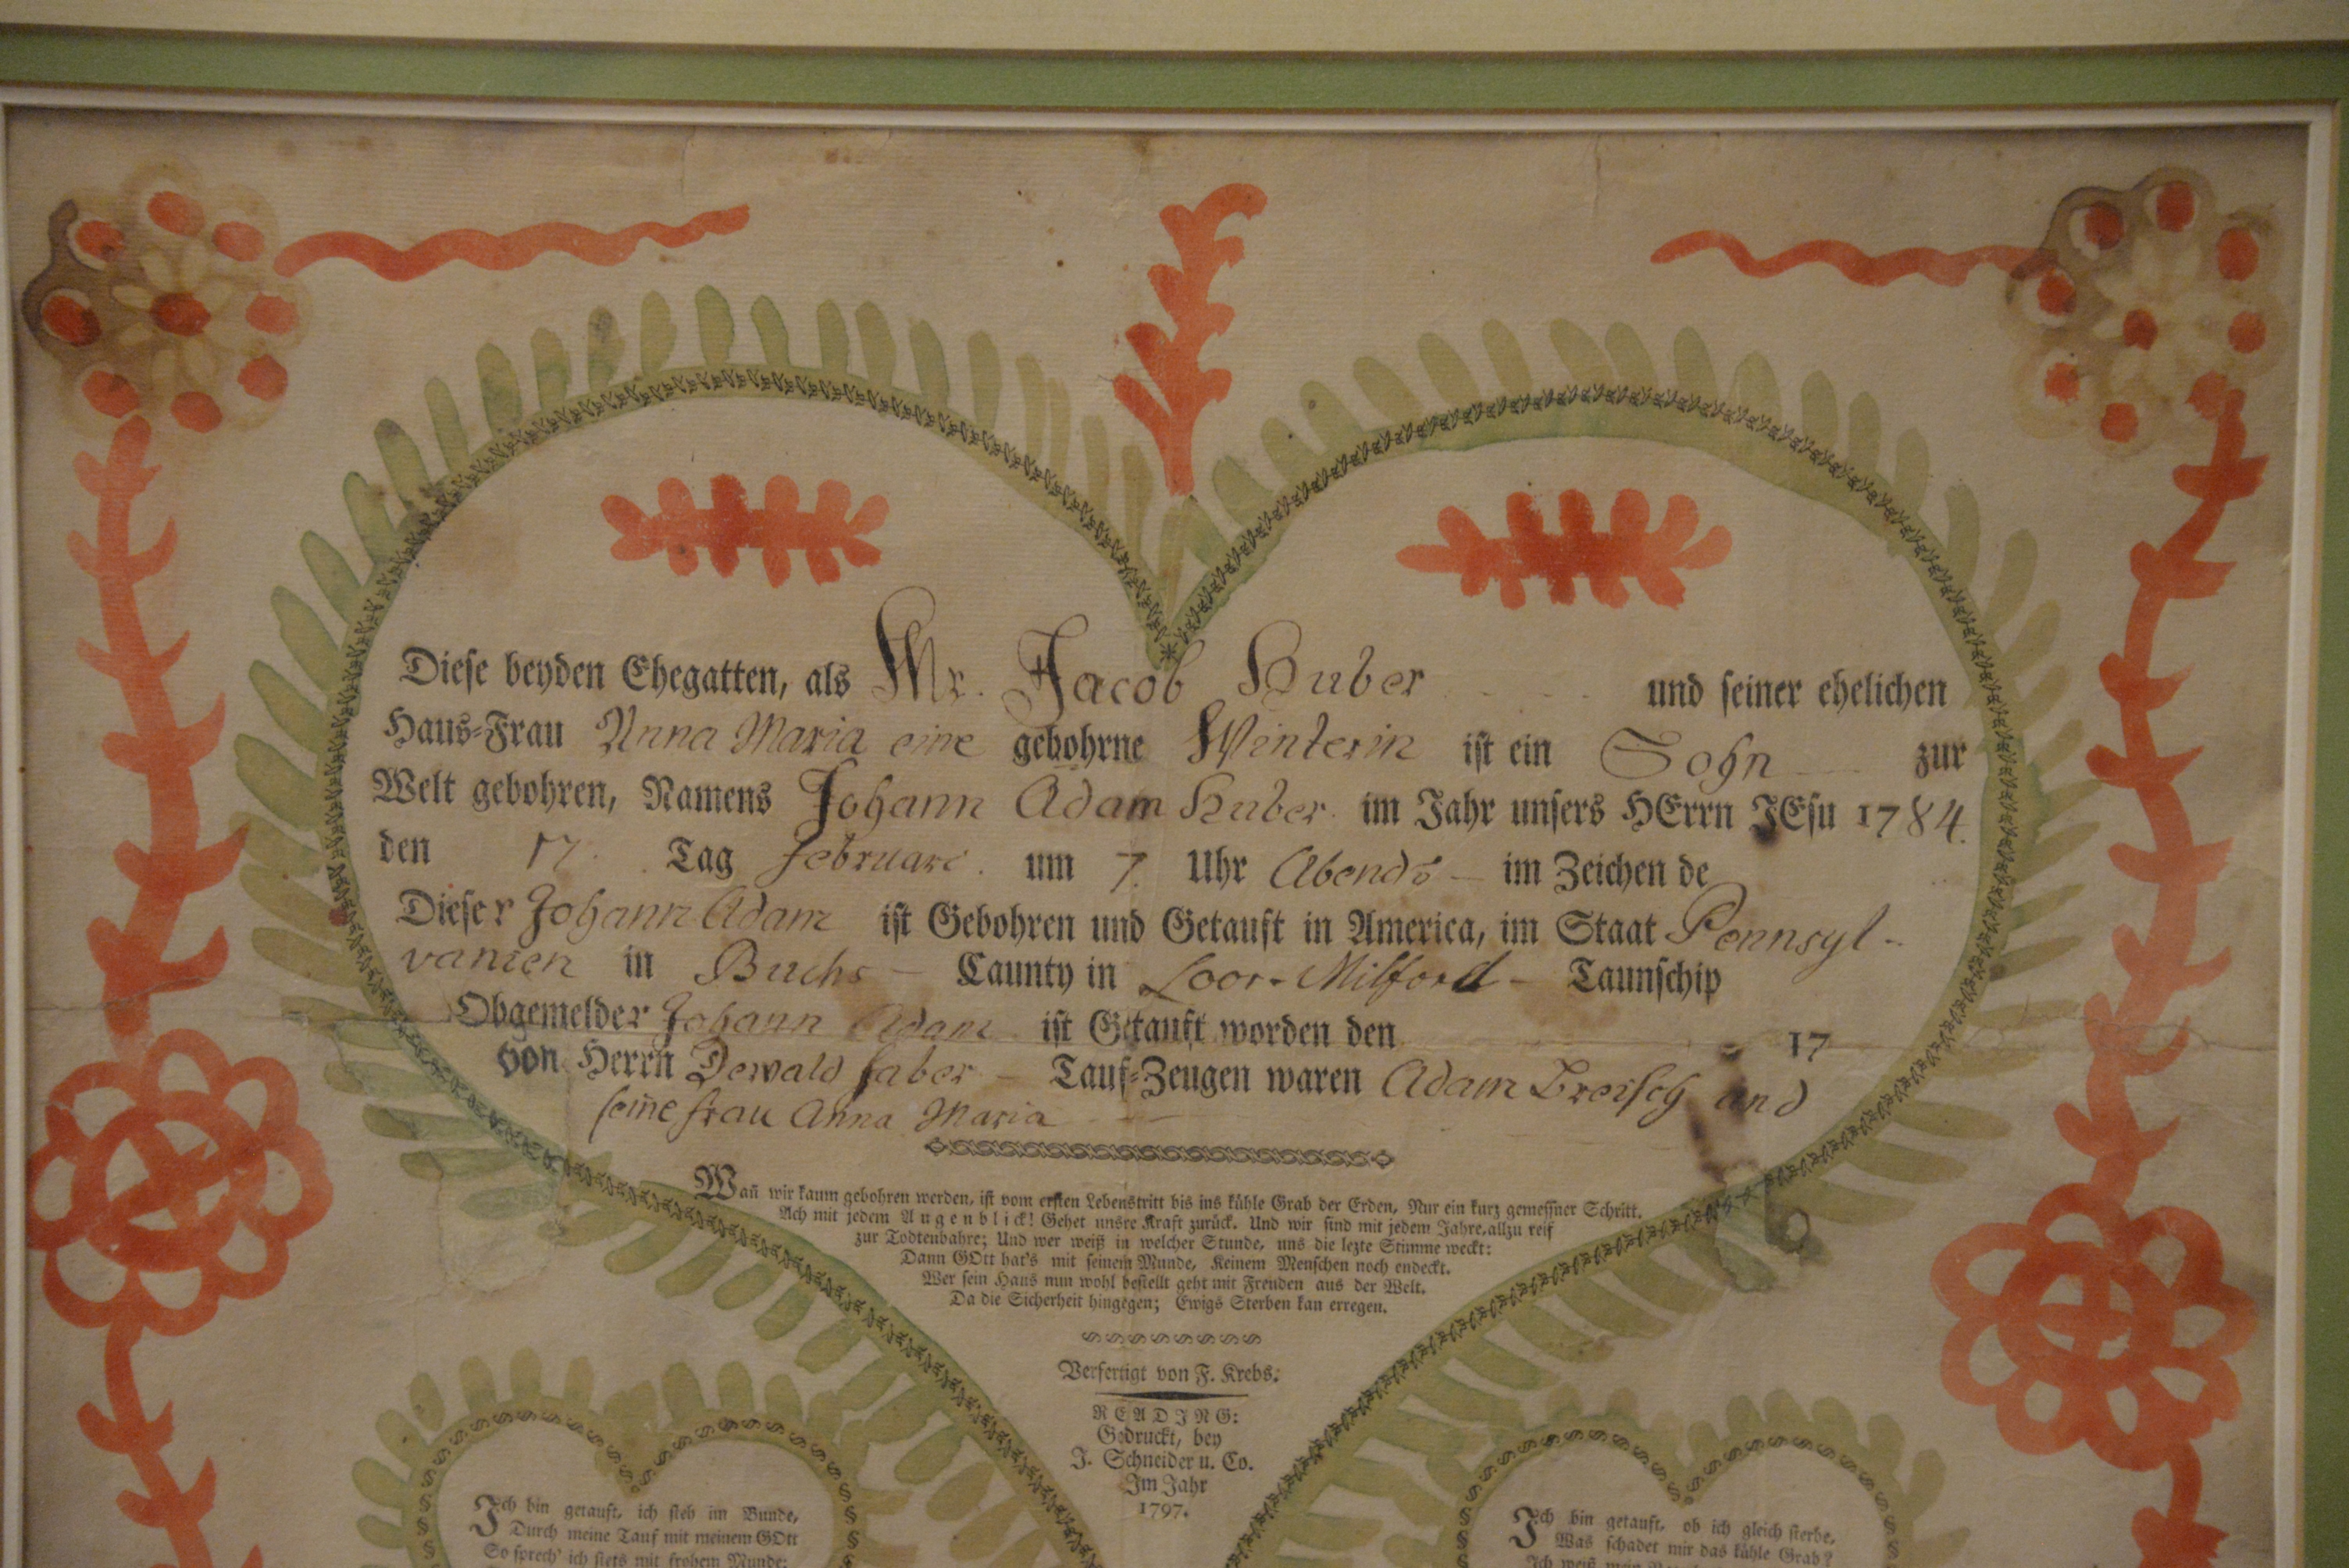 Diese beyden Ehegatten, als Mr. Jacob Huber und seiner ehelichen
Haus-Frau Anna Maria eine gebohrne Winterin ist ein Sohn zur
Welt gebohren, Namens Johann Adam Huber im Jahr unsers HErrn JEsu 1784.
den 17. Tag februari. um 7. Uhr Abends im Zeichen de
Dieser Johann Adam ist Gebohren und Getauft in America, im Staat Pennsyl-
vanien in Buchs Caunty in Loor-Milford Taunschip
Obgemelder Johann Adam ist Getauft worden den 17
von Herrn Dewald faber Tauf-Zeugen waren Adam und
seine frau Anna Maria
Wañ wir kaum gebohren werden, ist vom ersten Lebenstritt bis ins kühle Grab der Erden, Nur ein kurz gemessner Schritt.
Ach mit jedem Augenblick! Gehet unsre Kraft zurück. Und wir sind mit jedem Jahre, allzu reif
zur Todtenbahre; Und wer weiß in welcher Stunde, uns die lezte Stimme weckt:
Dann GOtt hat's mit seinem Munde, Keinem Menschen noch endeckt.
Wer sein Haus nun wohl bestellt geht mit Freuden aus der Welt.
Da die Sicherheit hingegen; Ewigs Sterben kan erregen.
Verfertigt von F. Krebs.
READING:
Gedruckt, bey
J. Schneider u. Co.
Im Jahr
1797.
Ich bin getauft, ich steh im Bunde,
Durch meine Tauf mit meinem GOtt
So sprech' ich stets mit frohem Munde:
Ich bin getauft, ob ich gleich sterbe,
Was schadet mir das kühle Grab?
Ich weiß mein